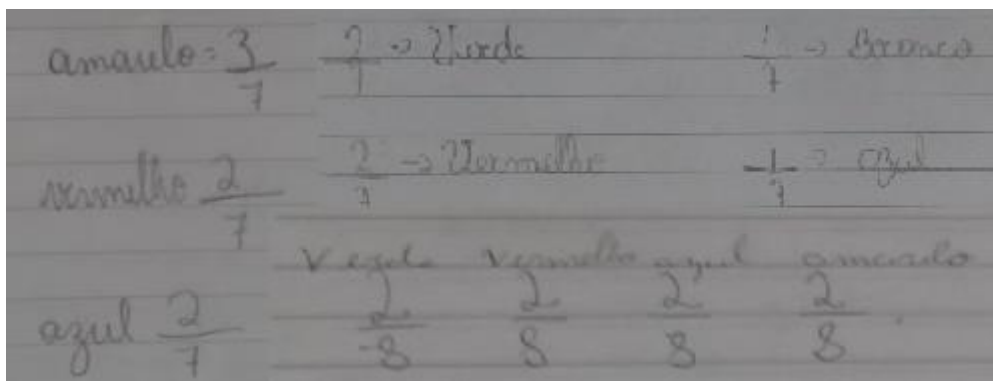 amarelo = 3/7
vermelho 2/7
azul 2/7
2/7 → Verde
1/7 → Branco
2/7 → Vermelho
1/7 → azul
Verde vermelho azul amarelo
2/8 2/8 2/8 2/8.